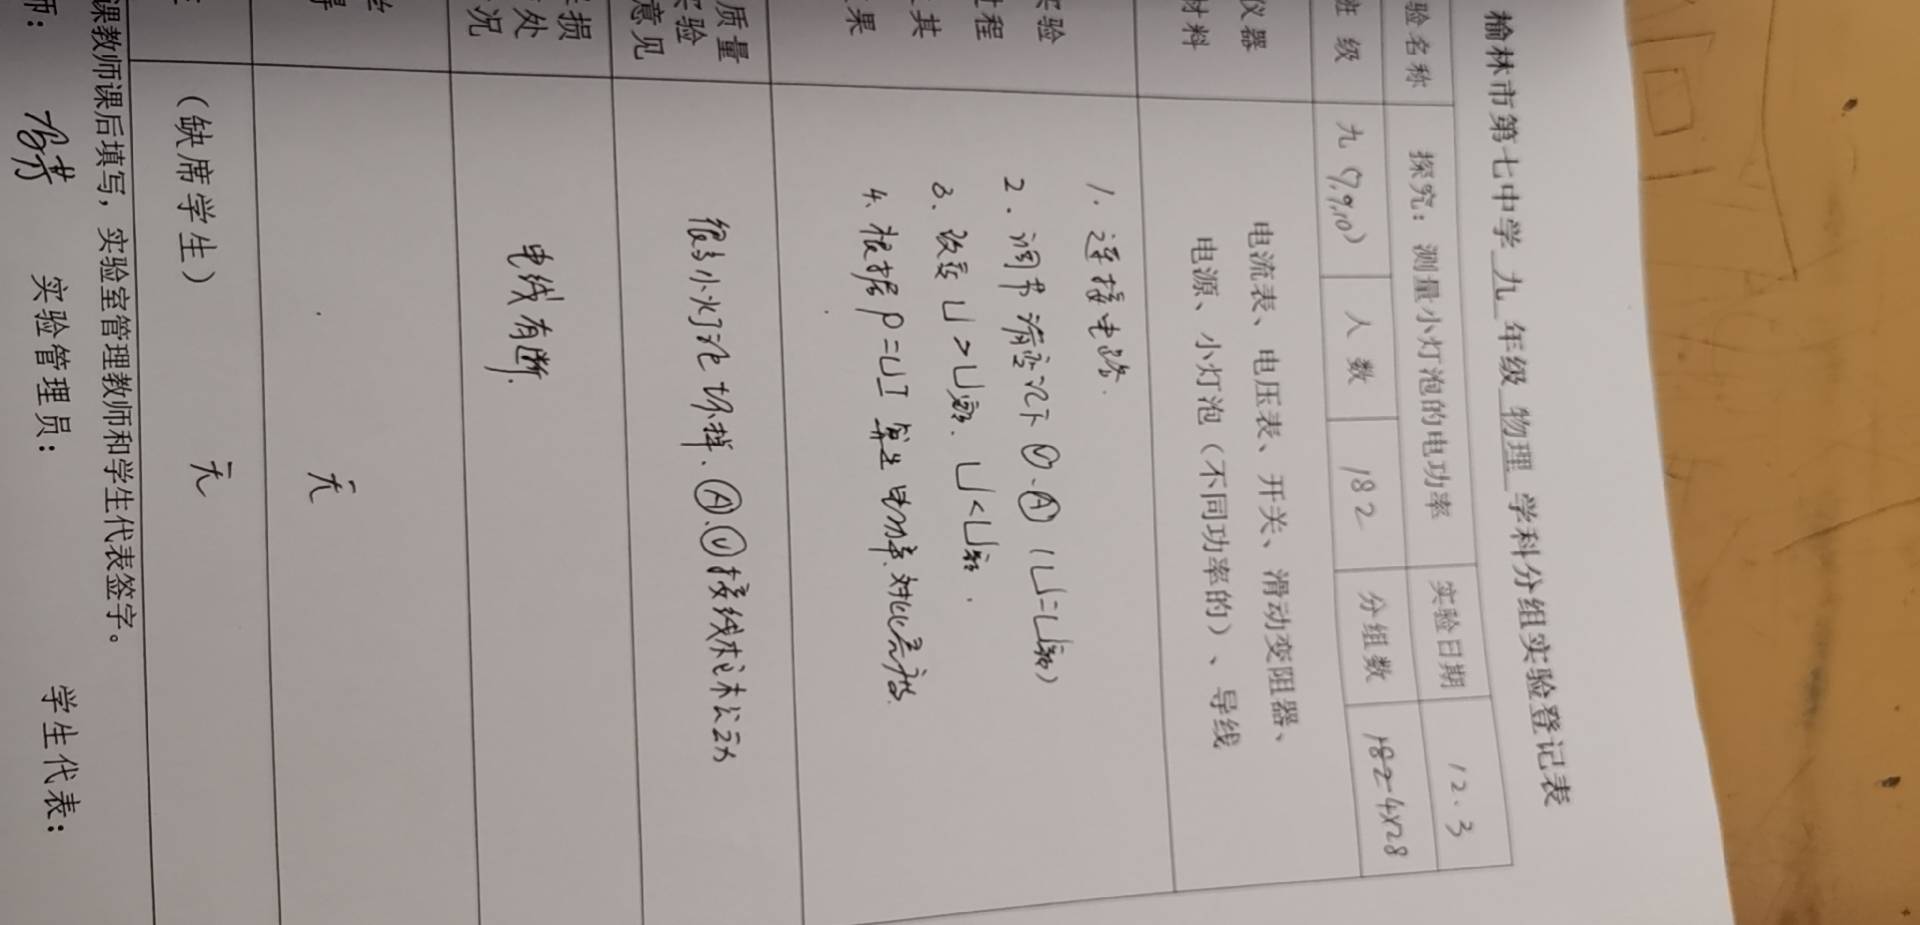 榆林市第七中学 九 年级 物理 学科分组实验登记表
验名称 探究：测量小灯泡的电功率 实验日期 12.3
班 级 九 人 数 182 分组数 4×28
仪器 电流表、电压表、开关、滑动变阻器、
材料 电源、小灯泡（不同功率的）、导线
1. 连接电路.
实验 2. 调节滑变记下Ⓥ.Ⓐ (U=U额)
过程 3. 改变 U>U额. U<U额.
其 4. 根据 P=UI 算出电功率.对比亮度
果
质量 很多小灯泡坏掉、Ⓐ.Ⓥ接线柱
实验
意见
损 电线有断.
处
况
无
（缺席学生） 无
课教师课后填写，实验室管理教师和学生代表签字。
师： 实验管理员： 学生代表：